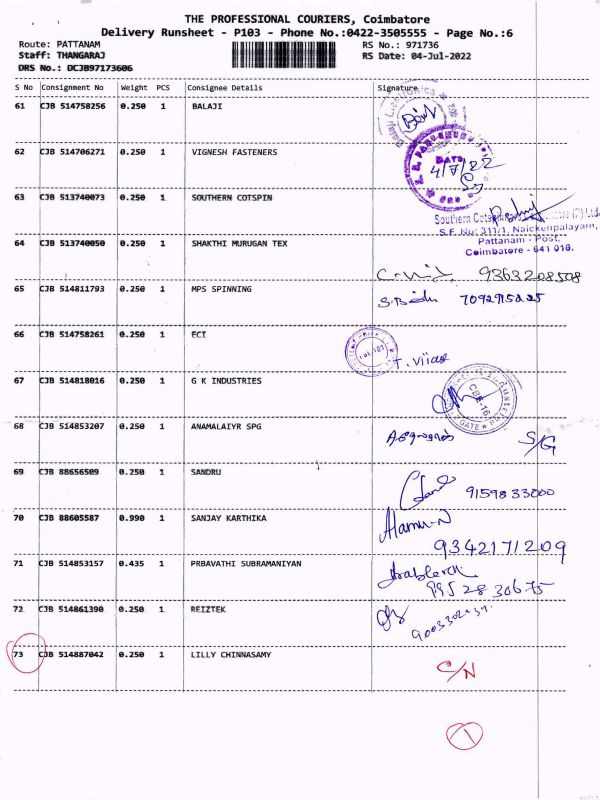 THE PROFESSIONAL COURIERS, Coimbatore
Delivery Runsheet - P103 - Phone No.:0422-3505555 - Page No.:6
Route: PATTANAM RS No.: 971736
Staff: THANGARAJ RS Date: 04-Jul-2022
DRS No.: DCJB97173606
S No Consignment No Weight PCS Consignee Details Signature
61 CJB 514758256 0.250 1 BALAJI
62 CJB 514706271 0.250 1 VIGNESH FASTENERS
DATE
4/7/22
63 CJB 513740073 0.250 1 SOUTHERN COTSPIN
Southern
S.F. No: 311/1, Naickenpalayam,
64 CJB 513740050 0.250 1 SHAKTHI MURUGAN TEX
Pattanam - Post,
Coimbatore - 641 016.
9363208508
65 CJB 514811793 0.250 1 MPS SPINNING
7092715225
66 CJB 514758261 0.250 1 ECI
T. Vijay
67 CJB 514818016 0.250 1 G K INDUSTRIES
CBE-16
GATE
68 CJB 514853207 0.250 1 ANAMALAIYR SPG
S/G
69 CJB 88656509 0.250 1 SANDRU
9159833000
70 CJB 88605587 0.990 1 SANJAY KARTHIKA
Alamu-N
9342171209
71 CJB 514853157 0.435 1 PRBAVATHI SUBRAMANIYAN
72 CJB 514861390 0.250 1 REIZTEK
73 CJB 514887042 0.250 1 LILLY CHINNASAMY
C/N
1